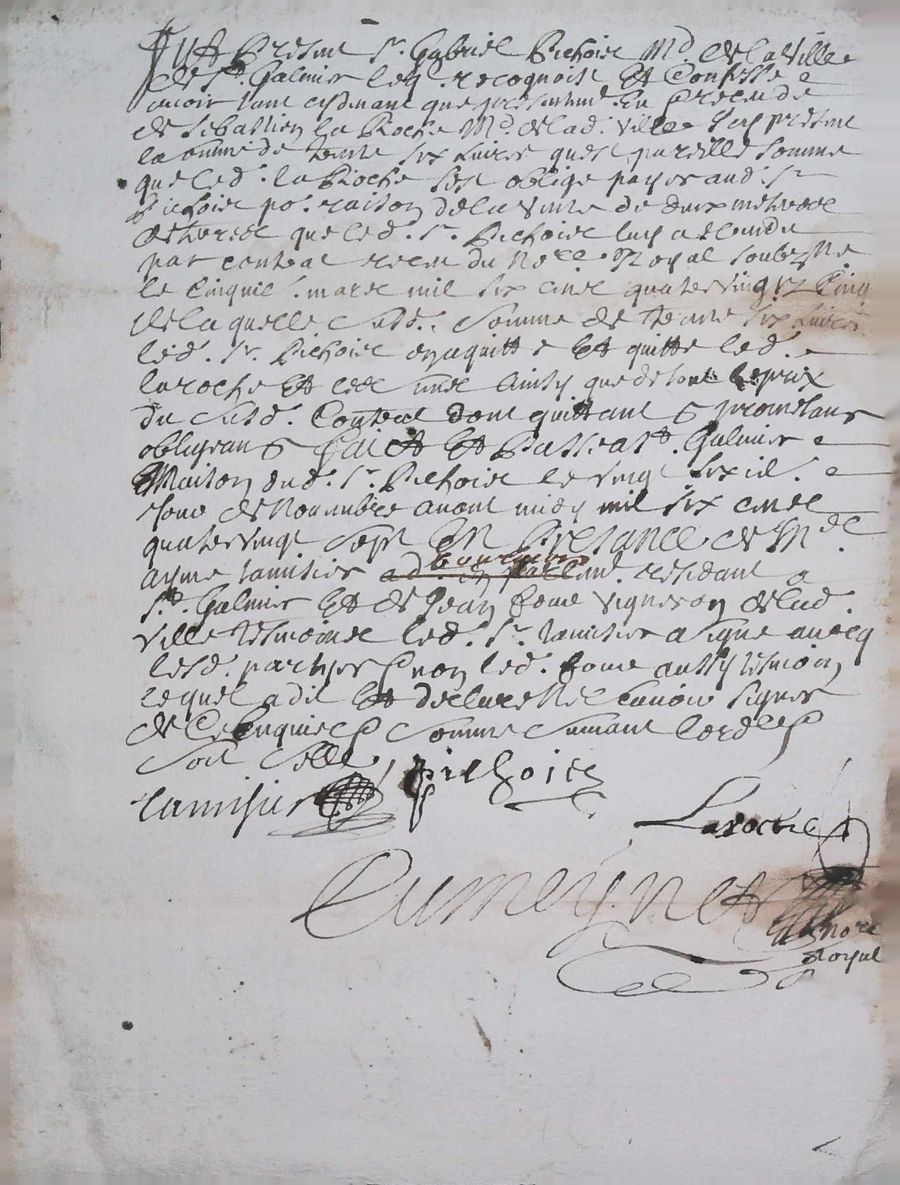 Fut present Sr. Gabriel Pichoir Md. de la Ville
de St. Galmier lequel recognoist et Confesse
avoir tant cydevant que presentemt. En Receu de
de Sebastien la Roche Md. de lad. Ville Icy present
la somme de trente six livres que pareille somme
que led. la Roche sest oblige payer aud. Sr
Pichoir po. raison de la vante de deux
que led. Sr. Pichoir luy a vendu
par contrat receu du No.re Royal soubzne
le Cinquie. mars mil six cent quatervingtz Cinq
de la quelle susd. somme de trente six livres
led. Sr. Pichoir en aquitte et quitte led.
laroche et les siens ainsy que de tout le prix
du susd. Contrat dont quittant promettans
obligeans fait et Passe a St. Galmier
Maison dud. Sr. Pichoir le vingt sixie.
Jour de Novembre avant midy mil six cent
quatervingt sept En Presance de Mre
ayme tamisier bourgeois residant a
St. Galmier et de Jean fome vigneron de lad.
Ville tesmoins led. Sr. tamisier a signe avecq
lesd. parties non led. fome aussy tesmoin
lequel a dit et declare ne scavoir signer
de ce enquis somme suivant lord.
Soit selle
tamisier Pichoir
Laroche
Dumeynet
No.re
Royal